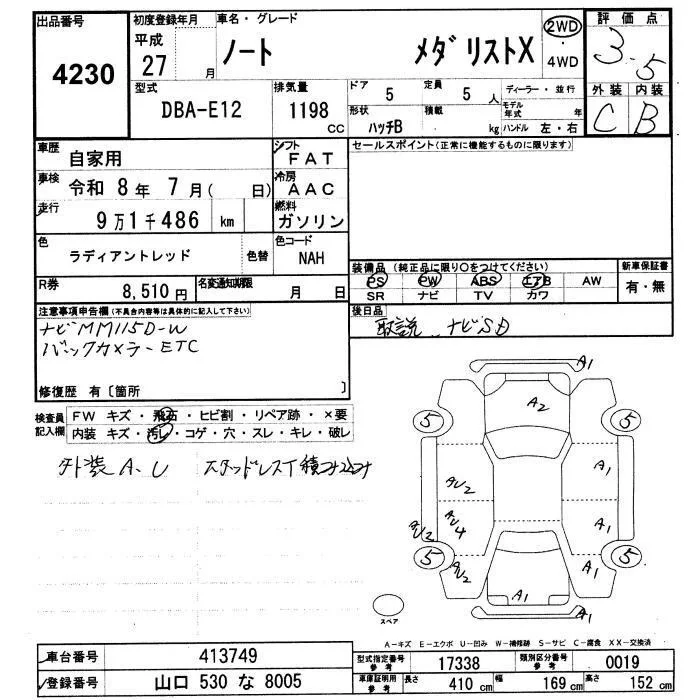 出品番号
4230
初度登録年月
平成
27 月
車名・グレード
ノート メダリストX
2WD
・
4WD
評価点
3.5
外装 内装
C B
型式
DBA-E12
排気量
1198
CC
ドア 5
定員 5 人
ディーラー・並行
形状 ハッチB
積載 kg
モデル年式 年
ハンドル 左・右
車歴 自家用
シフト FAT
車検 令和 8年 7月( 日)
冷房 AAC
走行 9万1千486 km
燃料 ガソリン
色 ラディアントレッド 色替
色コード NAH
R券 8,510円
名変通知期限 月 日
セールスポイント(正常に機能するものに限ります)
装備品(純正品に限り○をつけてください)
PS PW ABS エアB AW
SR ナビ TV カワ
新車保証書
有・無
後日品
取説 ナビSD
注意事項申告欄(不具合内容等は具体的に記入して下さい)
ナビMM115D-W
バックカメラ-ETC
修復歴 有〔箇所 〕
検査員記入欄
FW キズ・飛石・ヒビ割・リペア跡・×要
内装 キズ・汚レ・コゲ・穴・スレ・キレ・破レ
外装 A.U スタッドレスT積ミ込ミ
A1
A2
5 5
A1
AU2
A1
AU2 AU4
5 5
AU2 A1
A1
A1
スペア
A-キズ E-エクボ U-凹み W-補修跡 S-サビ C-腐食 XX-交換済
車台番号 413749
登録番号 山口 530 な 8005
型式指定番号 参考 17338
類別区分番号 参考 0019
車庫証明用 参考 長さ 410 cm 幅 169 cm 高さ 152 cm